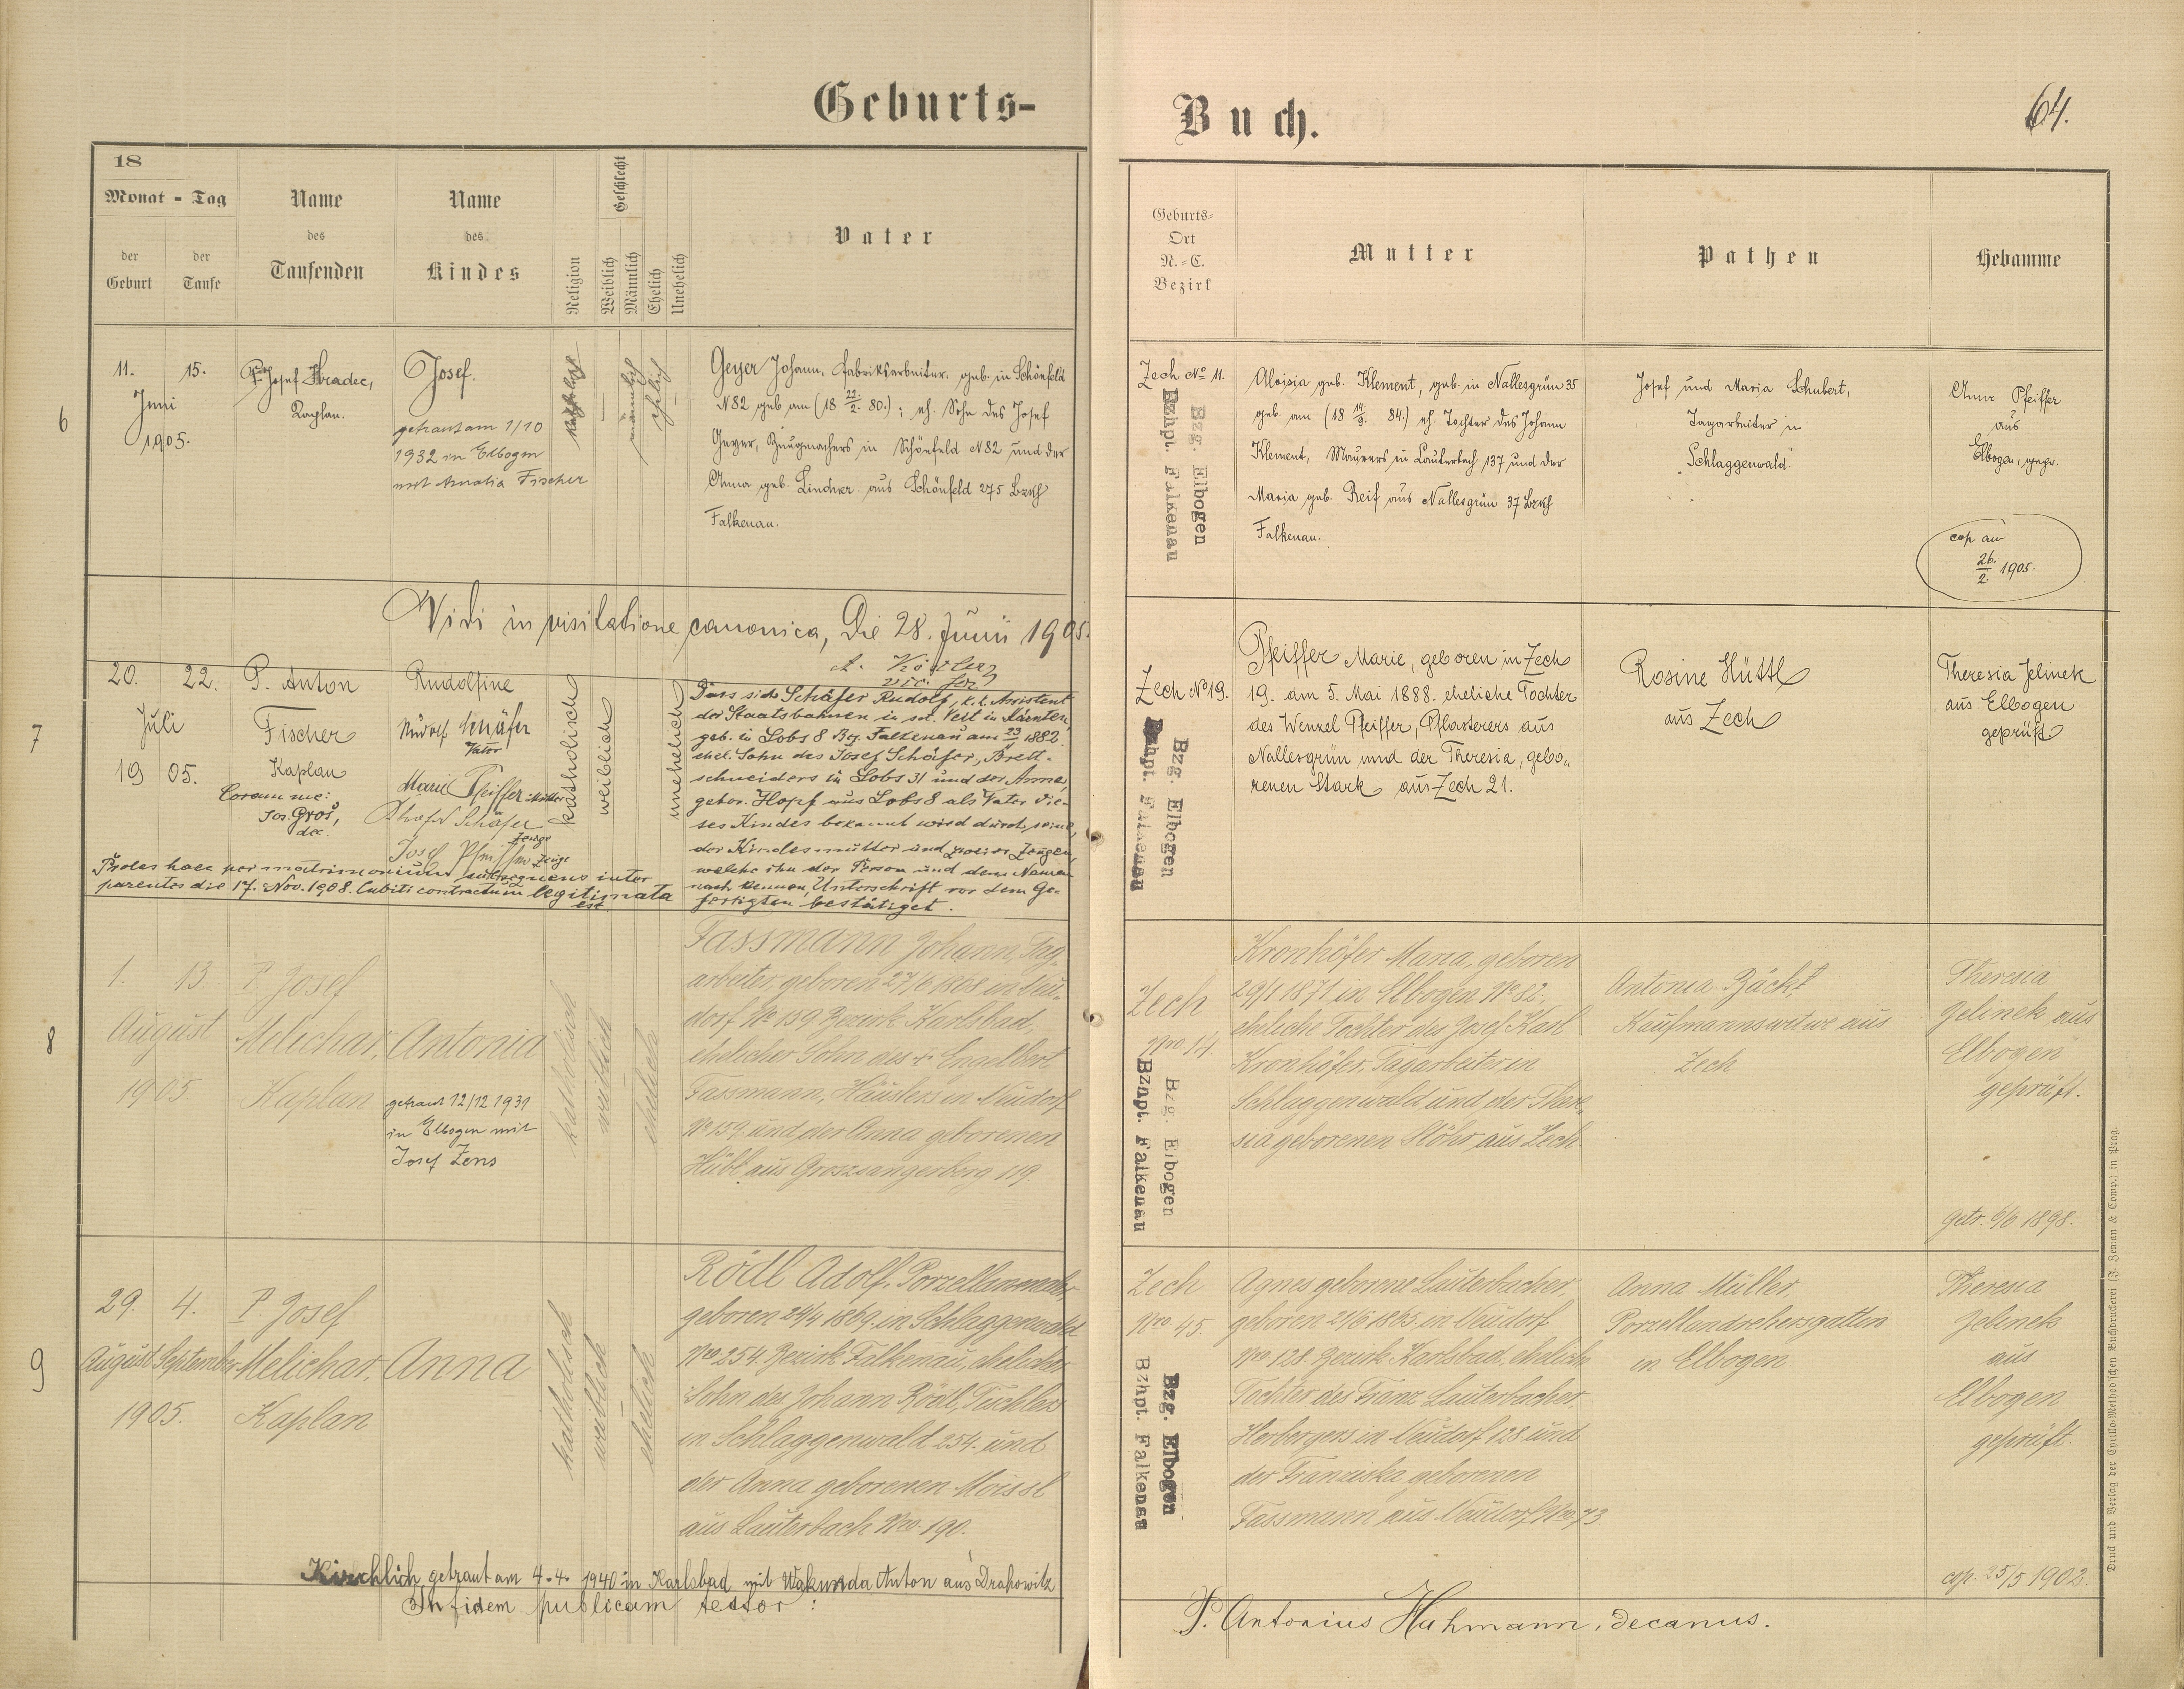 Geburts-
Buch.
64.
18
Monat - Tag
der Geburt
der Taufe
Name des Taufenden
Name des Kindes
Religion
Geschlecht
Weiblich
Männlich
Ehelich
Unehelich
Vater
Geburts-
Ort
N.-C.
Bezirk
Mutter
Pathen
Hebamme
6
11. 15.
Juni
1905.
P. Josef Hradec,
Kaplan.
Josef
getraut am 1/10
1932 in Elbogen
mit Amalia Fischer
katholisch
männlich
ehelich
Geyer Johann, Fabriksarbeiter, geb. in Schönfeld
N 82 geb am (18 22/2. 80.); eh. Sohn des Josef
Geyer, Zeugmachers in Schönfeld N 82 und der
Anna geb. Lindner aus Schönfeld 275 Bzkh
Falkenau.
Zech No 11.
Bzg. Elbogen
Bzhpt. Falkenau
Aloisia geb. Klement, geb. in Nallesgrün 35
geb. am (18 14/9. 84.) eh. Tochter des Johann
Klement, Maurers in Lauterbach 137 und der
Maria geb. Reif aus Nallesgrün 37 Bzkh
Falkenau.
Josef und Maria Schubert,
Tagarbeiter in
Schlaggenwald.
Anna Pfeiffer
aus
Elbogen, gepr.
cop am
26./2. 1905.
Vidi in visitatione canonica, Die 28. Junii 1905.
A. Köstler
vic. for.
7
20. 22.
Juli
1905.
P. Anton
Fischer
Kaplan
Coram me:
Jos. Groš,
dec.
Rudolfine
Rudolf Schäfer
Vater
Marie Pfeiffer Mutter
Schäfer
Zeuge
Josef Pfeiffer Zeuge
Proles haec per matrimonium subsequens inter
parentes die 17. Nov. 1908. Cubiti contractum legitimata
est
katholisch
weiblich
unehelich
Dass sich Schäfer Rudolf, k.k. Assistent
der Staatsbahnen in set. Veit in Kärnten,
geb. in Lobs 8 Bez. Falkenau am 23/ 1882.
ehel. Sohn des Josef Schäfer, Brett-
schneiders in Lobs 31 und der Anna,
gebor. Hopf aus Lobs 8 als Vater die-
ses Kindes bekannt wird durch seine,
der Kindesmutter und zweier Zeugen,
welche ihn der Person und dem Namen
nach kennen, Unterschrift vor dem Ge-
fertigten bestätiget.
Zech No 19.
Bzg. Elbogen
Bzhpt. Falkenau
Pfeiffer Marie, geboren in Zech
19. am 5. Mai 1888. eheliche Tochter
des Wenzel Pfeiffer, Pflasterers aus
Nallesgrün und der Theresia, gebo„
renen Stark aus Zech 21.
Rosine Hüttl
aus Zech
Theresia Jelinek
aus Elbogen
geprüft
8
1. 13.
August
1905
P. Josef
Melichar,
Kaplan
Antonia
getraut 12/12 1931
in Elbogen mit
Josef Zens
katholisch
weiblich
ehelich
Fassmann Johann, Tag-
arbeiter, geboren 27/6 1868 in Neu-
dorf No 159 Bezirk Karlsbad,
ehelicher Sohn des † Engelbert
Fassmann, Häuslers in Neudorf
No 159. und der Anna geborenen
Hübl aus Groszsangerberg 119.
Zech
Nro. 14.
Bzg. Elbogen
Bzhpt. Falkenau
Kronhöfer Maria, geboren
29/1 1871 in Elbogen No 82,
eheliche Tochter des Josef Karl
Kronhöfer, Tagarbeiter in
Schlaggenwald und der There-
sia geborenen Stöhr aus Zech.
Antonia Zücht
Kaufmannswitwe aus
Zech
Theresia
Jelinek aus
Elbogen
geprüft.
getr. 6/6 1898.
9
29. 4.
August September
1905.
P. Josef
Melichar,
Kaplan
Anna
katholisch
weiblich
ehelich
Rödl Adolf, Porzellanmaler,
geboren 24/4 1869. in Schlaggenwald
Nro 254. Bezirk Falkenau, ehelicher
Sohn des Johann Rödl, Tischlers
in Schlaggenwald 254. und
der Anna geborenen Moissl
aus Lauterbach Nro. 190.
Zech
Nro. 45.
Bzg. Elbogen
Bzhpt. Falkenau
Agnes geborene Lauterbacher,
geboren 21/6 1865. in Neudorf
Nro 128. Bezirk Karlsbad, eheliche
Tochter des Franz Lauterbacher,
Herbergers in Neudorf 128. und
der Franziska geborenen
Fassmann aus Neudorf Nro. 73.
Anna Müller,
Porzellandrehersgattin
in Elbogen
Theresia
Jelinek
aus
Elbogen
geprüft.
cop. 25/5 1902.
Kirchlich getraut am 4.4. 1940 in Karlsbad mit Wakunda Anton aus Drahowitz
In fidem publicam testor:
P. Antonius Huhmann, decanus.
Druck und Verlag der Cyrillo-Method'schen Buchdruckerei (J. Zeman & Comp.) in Prag.